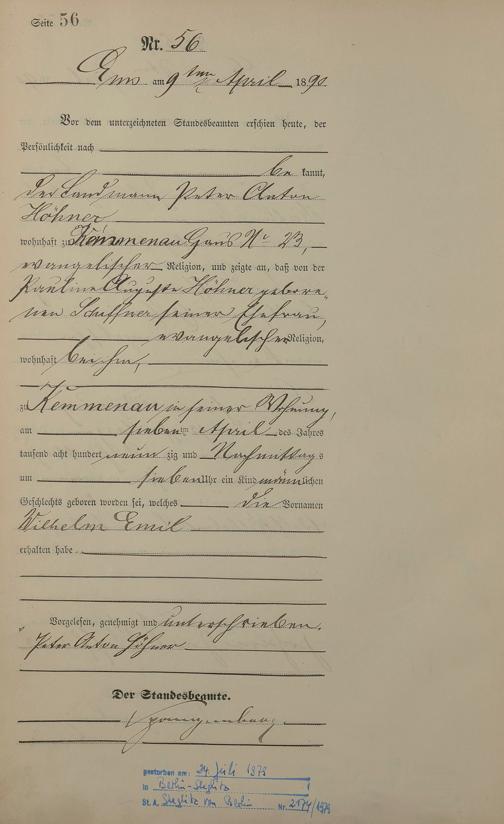 Seite 56
Nr. 56
Ems am 9ten April 1890
Vor dem unterzeichneten Standesbeamten erschien heute, der
Persönlichkeit nach
be kannt,
der Landmann Peter Anton
Höhner
wohnhaft zu Kemmenau Haus No 23,
evangelischer Religion, und zeigte an, daß von der
Pauline Auguste Höhner gebore-
nen Schiffner seiner Ehefrau,
evangelischer Religion,
wohnhaft bei ihm,
zu Kemmenau in seiner Wohnung,
am sieben ten April des Jahres
tausend acht hundert neun zig und Nachmittags
um sieben Uhr ein Kind männlichen
Geschlechts geboren worden sei, welches die Vornamen
Wilhelm Emil
erhalten habe
Vorgelesen, genehmigt und unterschrieben.
Peter Anton Höhner
Der Standesbeamte.
gestorben am: 24. Juli 1979
in Berlin-Steglitz
St. A. Steglitz von Berlin Nr. 2174/1979